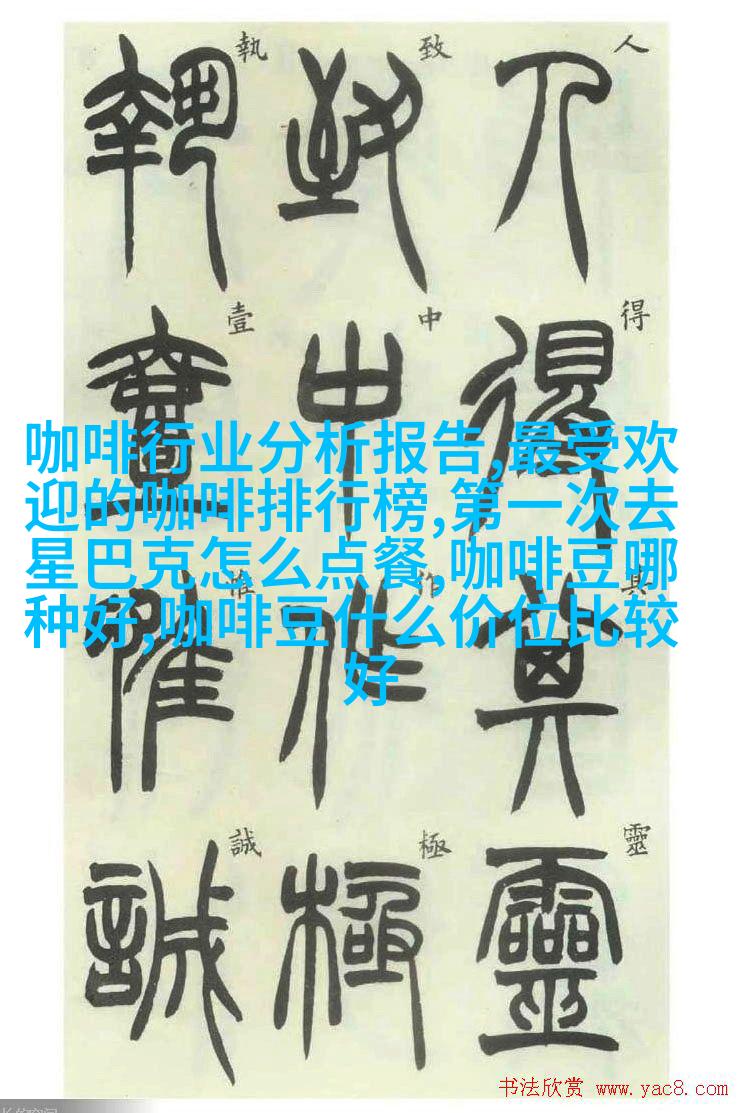 人得其靈
人得其靈
致中作極
致中作極
執壹惟誠
執壹惟誠
咖啡行业分析报告,最受欢
迎的咖啡排行榜,第一次去
星巴克怎么点餐,咖啡豆哪
种好,咖啡豆什么价位比较
好
书法欣赏 www.yac8.com